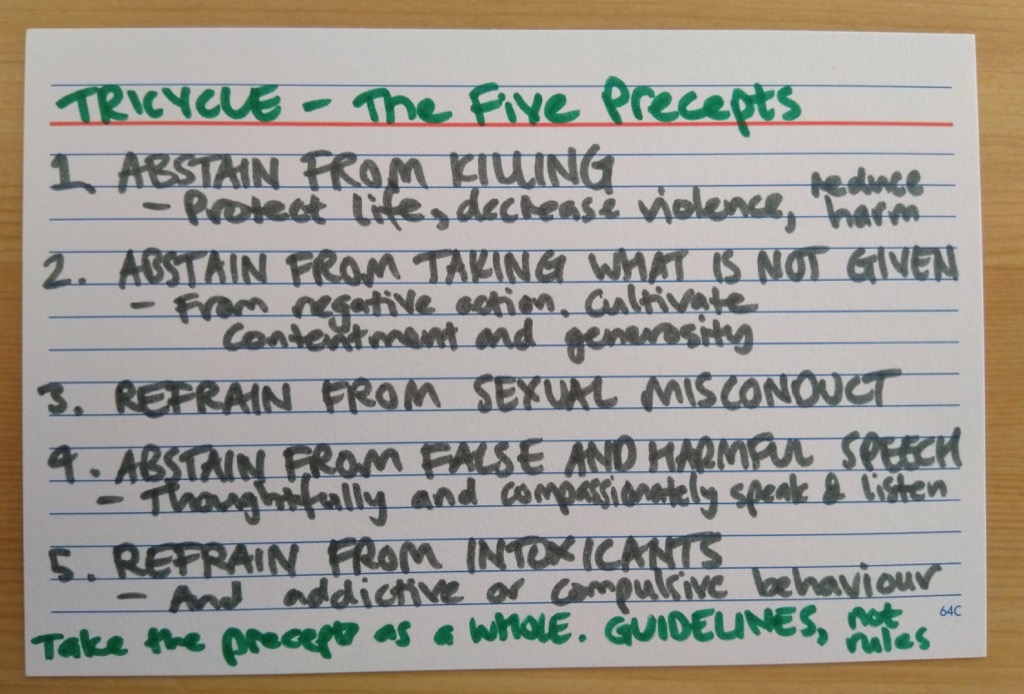 TRICYCLE - The Five Precepts
1. ABSTAIN FROM KILLING
- Protect life, decrease violence, reduce harm
2. ABSTAIN FROM TAKING WHAT IS NOT GIVEN
- From negative action. Cultivate
contentment and generosity
3. REFRAIN FROM SEXUAL MISCONDUCT
4. ABSTAIN FROM FALSE AND HARMFUL SPEECH
- Thoughtfully and compassionately speak & listen
5. REFRAIN FROM INTOXICANTS
- And addictive or compulsive behaviour
64C
Take the precepts as a WHOLE. GUIDELINES, not rules